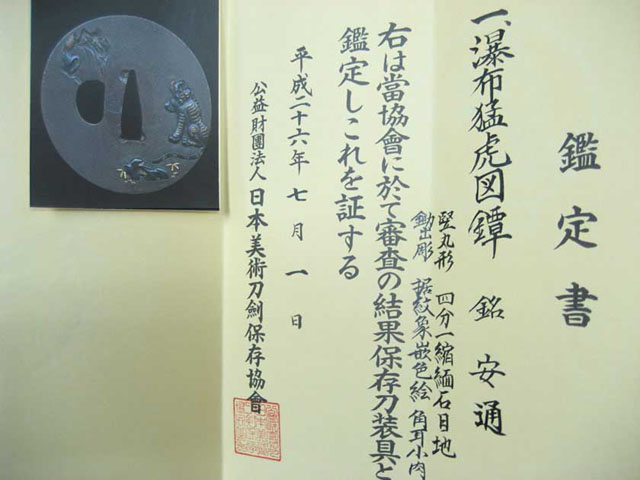 鑑定書
一、瀑布猛虎図鐔 銘 安通
竪丸形 四分一縮緬石目地
鋤出彫 据紋象嵌色絵 角耳小肉
右は當協會に於て審査の結果保存刀装具と
鑑定しこれを証する
平成二十六年七月一日
公益財團法人 日本美術刀劍保存協會